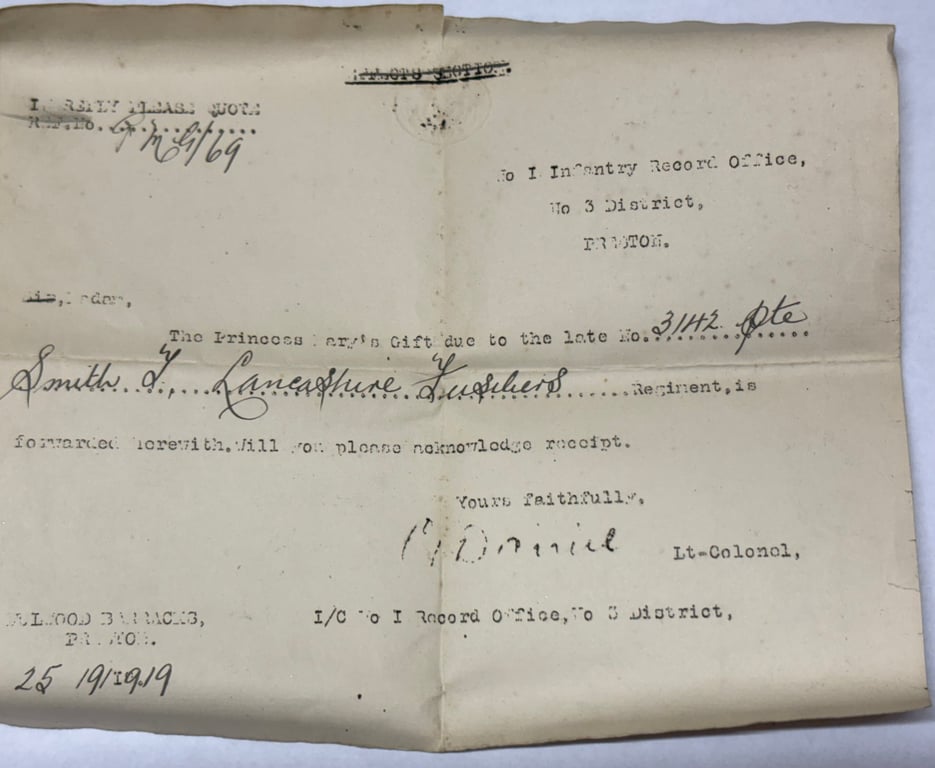 EFFECTS SECTION.
IN REPLY PLEASE QUOTE
REF.No. G M G/69
No I Infantry Record Office,
No 3 District,
PRESTON.
Sir, Madam,
The Princess Mary's Gift due to the late No. 3142 Pte
Smith F, Lancashire Fusiliers Regiment, is
forwarded herewith. Will you please acknowledge receipt.
Yours faithfully,
Lt-Colonel,
FULWOOD BARRACKS, I/C No I Record Office, No 3 District,
PRESTON.
25 1919